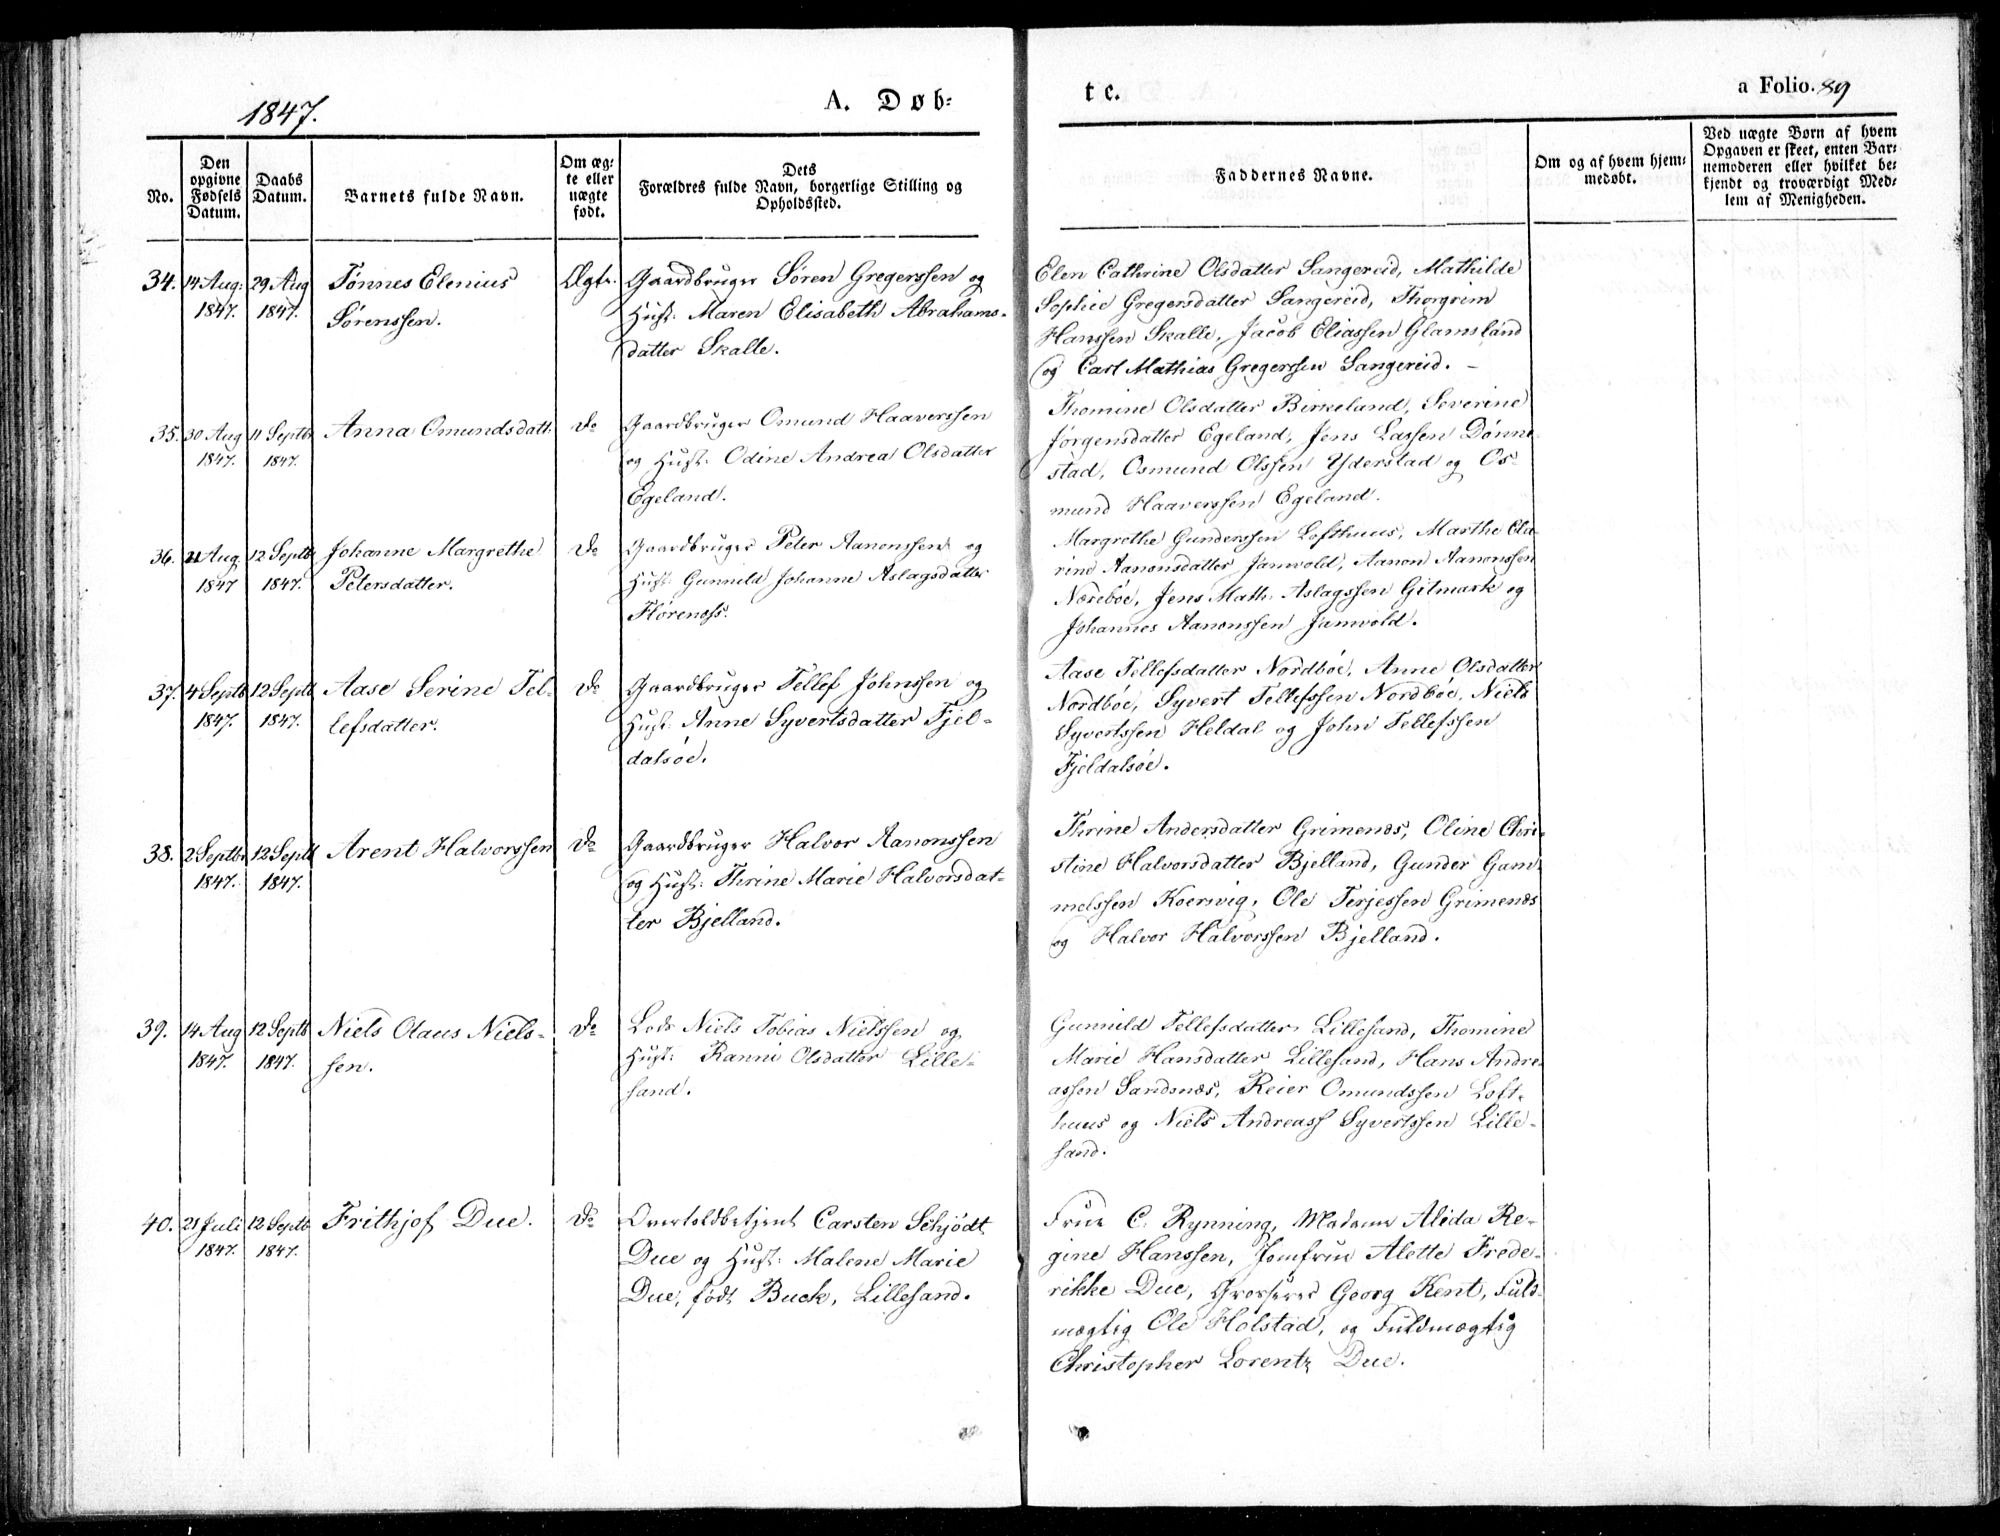 1847.
A. Døb=
te.
a Folio. 89
No.
Den
opgivne
Fødsels
Datum.
Daabs
Datum.
Barnets fulde Navn.
Om æg=
te eller
uægte
født.
Dets
Forældres fulde Navn, borgerlige Stilling og
Opholdssted.
Faddernes Navne.
Om og af hvem hjem=
medøbt.
Ved uægte Børn af hvem
Opgaven er skeet, enten Bar=
nemoderen eller hvilket be=
kjendt og troværdigt Med=
lem af Menigheden.
34.
14 Aug:
1847.
29 Aug
1847.
Tønnes Elenius
Sørenssen.
Ægte.
Gaardbruger Søren Gregerssen og
Hust: Maren Elisabeth Abrahams-
datter Skalle.
Elen Cathrine Olsdatter Sangereid, Mathilde
Sophie Gregersdatter Sangereid, Thorgrim
Hanssen Skalle, Jacob Eliassen Glamsland
og Carl Mathias Gregerssen Sangereid. -
35.
30 Aug
1847.
11 Septbr
1847.
Anna Omundsdatt.
do
Gaardbruger Omund Haaverssen
og Hust: Odine Andrea Olsdatter
Egeland.
Thomine Olsdatter Birkeland, Severine
Jørgensdatter Egeland, Jens Lassen Dønne-
stad, Osmund Olssen Yderstad og Os-
mund Haaverssen Egeland.
36.
21 Aug
1847
12 Septb
1847.
Johanne Margrethe
Petersdatter.
do
Gaardbruger Peter Aanonssen og
Hust: Gunnild Johanne Aslagsdatter
Flørenæss.
Margrethe Gunderssen Lofthuus, Marthe Cla-
rine Aanonsdatter Jamvold, Aanon Aanonssen
Nørebøe, Jens Math: Aslagssen Gitmark og
Johannes Aanonssen Jamvold.
37.
4 Septb
1847.
12 Septb
1847.
Aase Serine Tel-
lefsdatter.
do
Gaardbruger Tellef Johnssen og
Hust: Anne Syvertsdatter Fjel-
dalsøe.
Aase Tellefsdatter Nordbøe, Anne Olsdatter
Nordbøe, Syvert Tellefssen Nordbøe, Niels
Syvertssen Heldal og John Tellefssen
Fjeldalsøe.
38.
2 Septbr
1847.
12 Septb
1847.
Arent Halvorssen
do
Gaardbruger Halvor Aanonssen
og Hust: Thrine Marie Halvorsdat-
ter Bjelland.
Thrine Andersdatter Grimenæs, Oline Chri-
stine Halvorsdatter Bjelland, Gunder Gam-
melssen Koervig, Ole Terjessen Grimenæs
og Halvor Halvorssen Bjelland.
39.
14 Aug
1847.
12 Septb
1847.
Niels Olaus Niels-
sen.
do
Lods Niels Tobias Nielssen og
Hust: Ranni Olsdatter Lille-
sand.
Gunnild Tellefsdatter Lillesand, Thomine
Marie Hansdatter Lillesand, Hans Andre-
assen Sandsnæs, Reier Omundssen Loft-
huus og Niels Andreass Syvertssen Lille-
sand.
40.
21 Juli
1847.
12 Septb
1847.
Frithjof Due.
do
Overtoldbetjent Carsten Schjødt
Due og Hust: Malene Marie
Due, født Buck, Lillesand.
Frue C. Rynning, Madame Alida Re-
gine Hanssen, Jomfrue Alette Frede-
rikke Due, Grosserer Georg Kent, Fuld-
mægtig Ole Holstad, og Fuldmægtig
Christopher Lorentz Due.